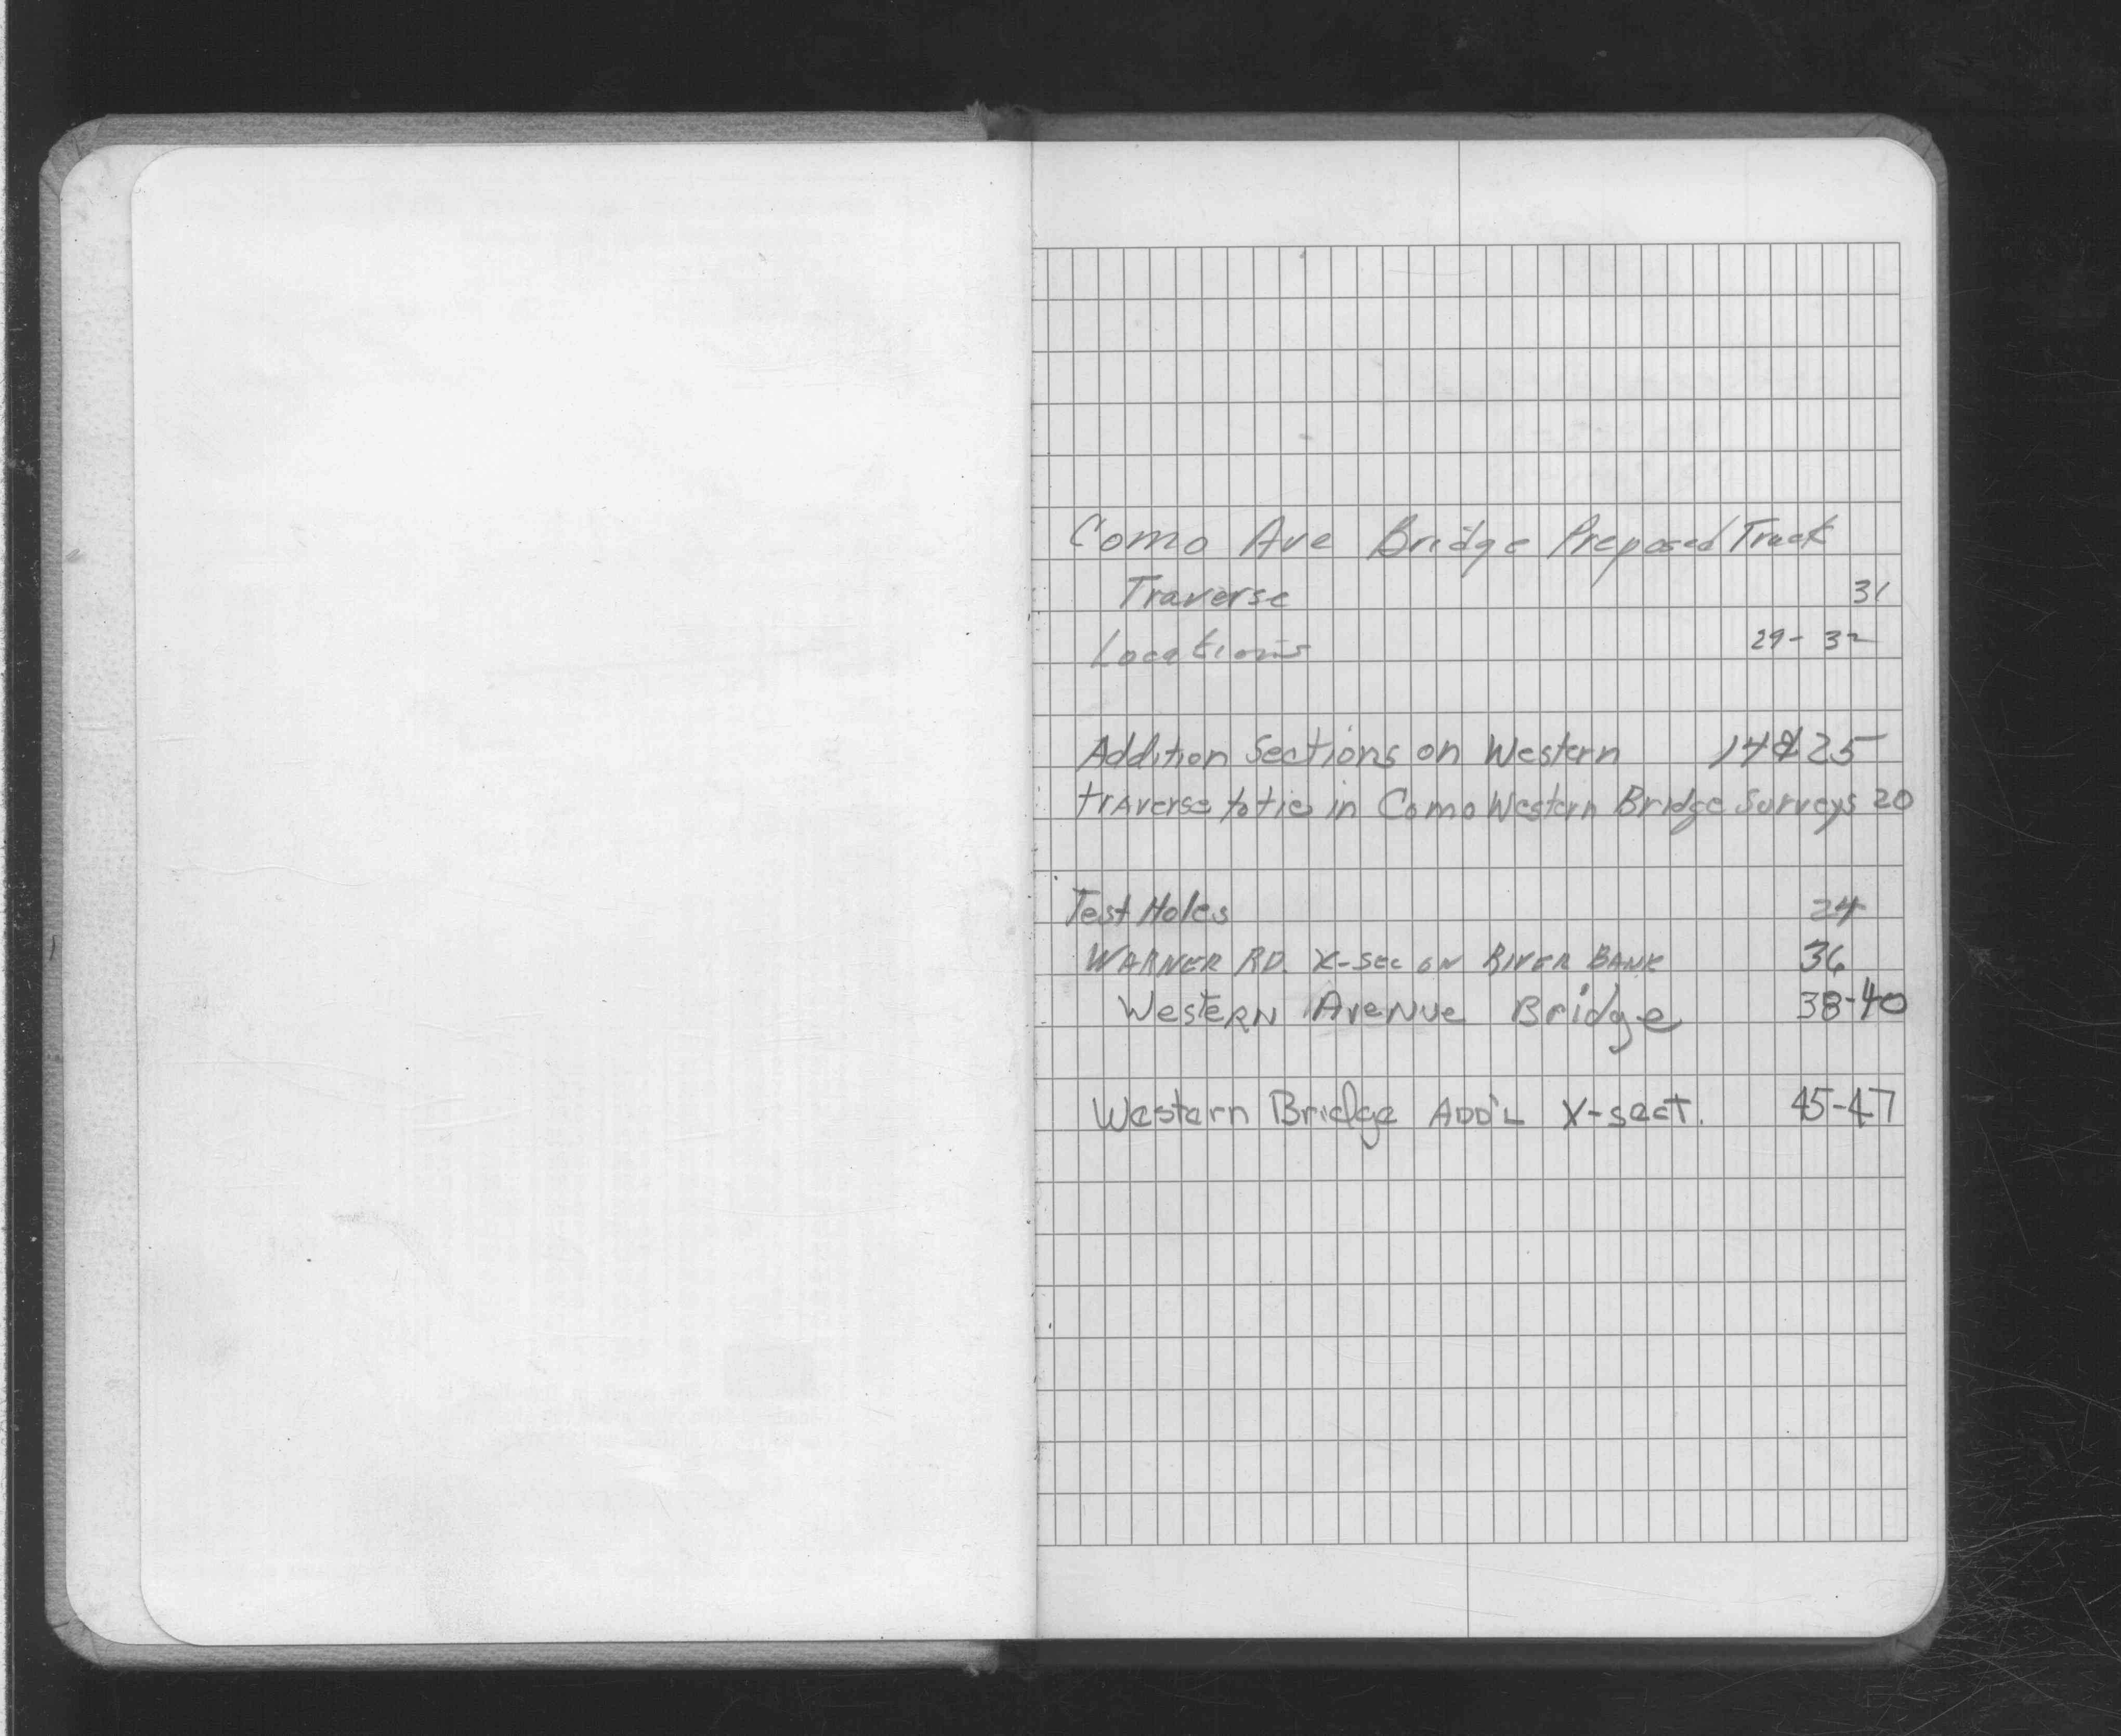 Como Ave Bridge Preposed Track
Traverse 31
Locations 29-32
Addition Sections on Western 14 & 25
Traverse to tie in Como Western Bridge Surveys 20
Test Holes 24
WARNER RD. X-SEC ON RIVER BANK 36
Western Avenue Bridge 38-40
Western Bridge ADD'L X-sect. 45-47